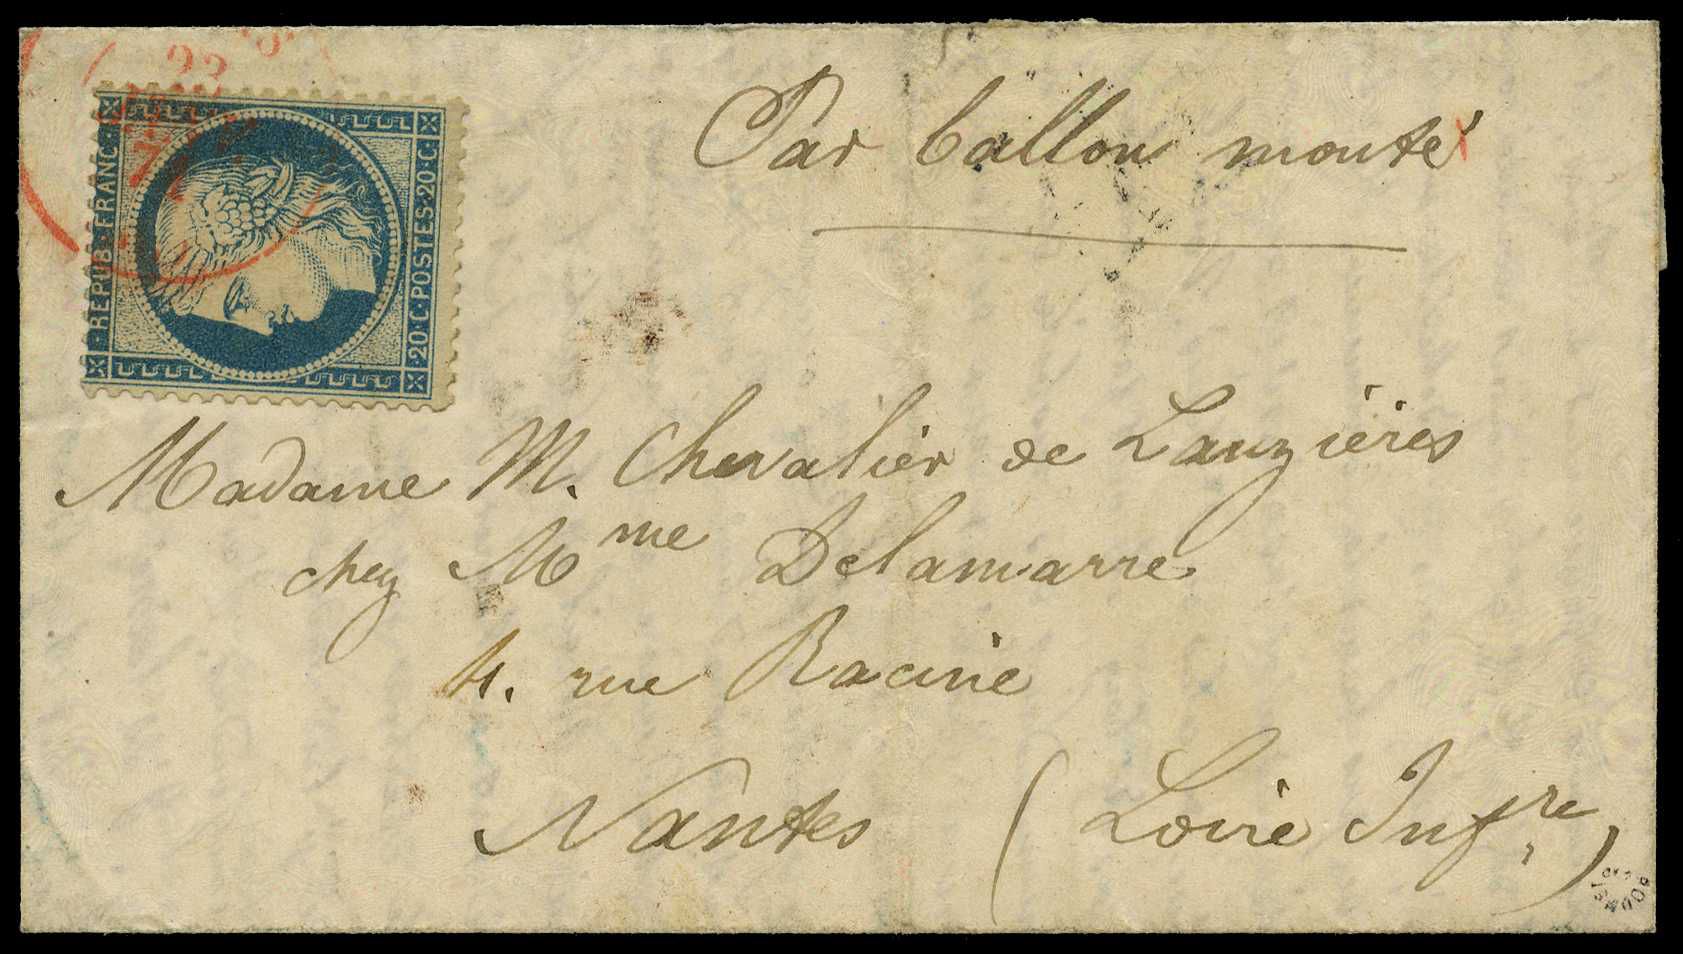 Par ballon monté
23
REPUB. FRANC.
20.C.POSTES.20.C.
Madame M. Chevalier de Lauzières
chez Mme Delamarre
4. rue Racine
Nantes (Loire Infre)